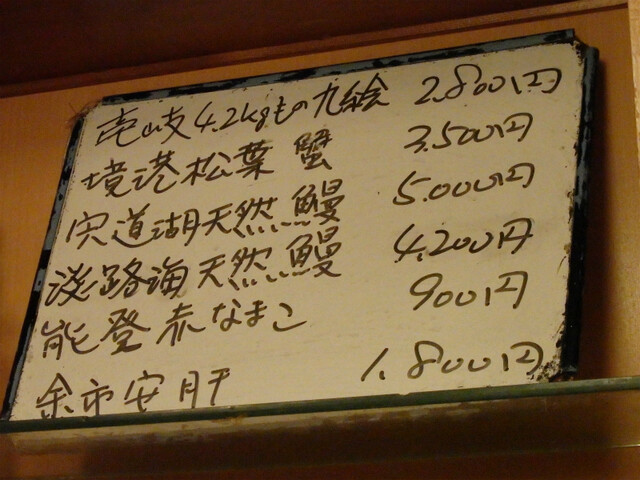 壱岐4.2kgもの九絵 2.800円
境港松葉蟹 3.500円
宍道湖天然鰻 5.000円
淡路海天然鰻 4.200円
能登赤なまこ 900円
余市安肝 1.800円